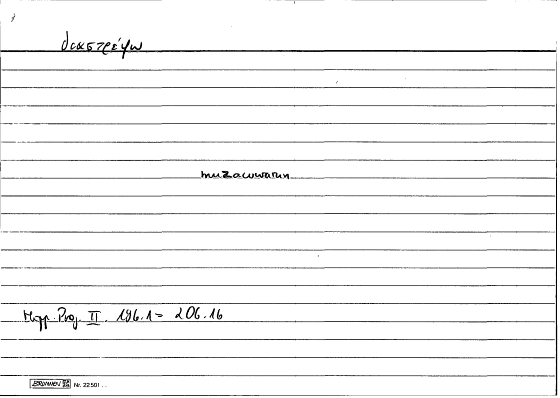 διαστρέφω
muzawwarun
Hipp. Prog. II. 196.1 = 206.16
BRUNNEN Nr. 22501